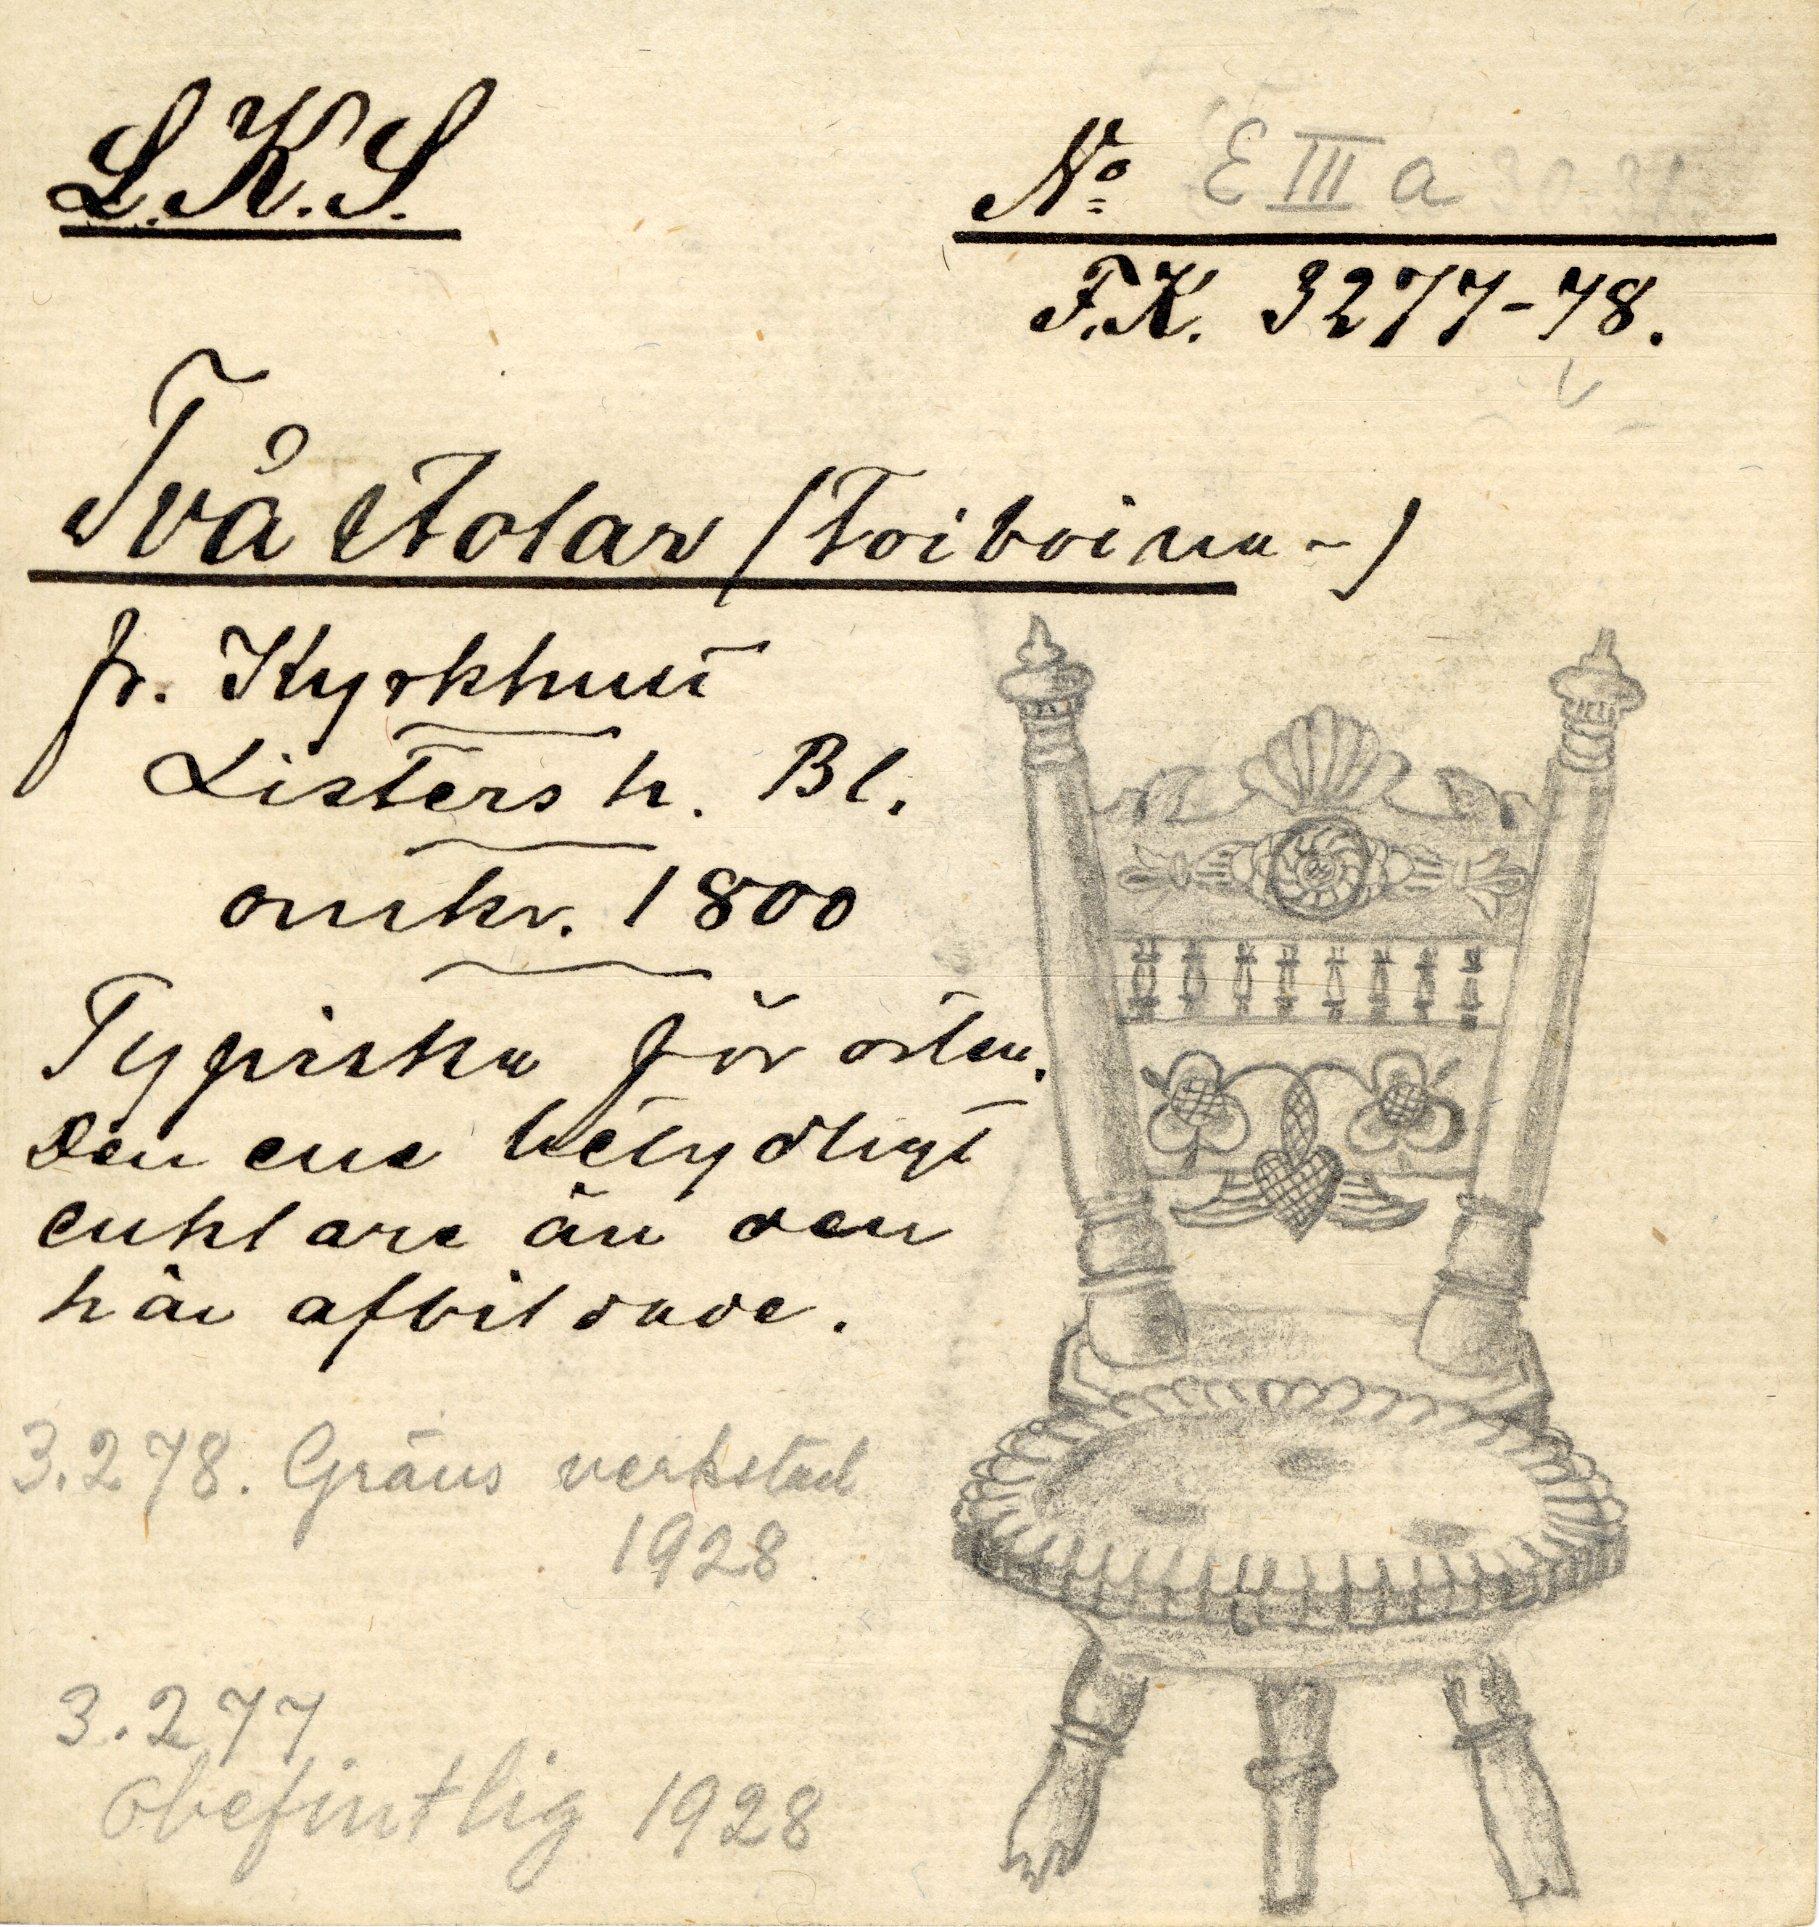 L.K.S.
No E III a 30.31.
F.K. 3277-78.
Två stolar (Torboirna-)
fr. Kyrkhult
Listers h. Bl.
omkr. 1800
Typiska för orten.
Den ena betydligt
enklare än den
här afbildade.
3.278. Gräns verkstad
1928.
3.277
obefintlig 1928